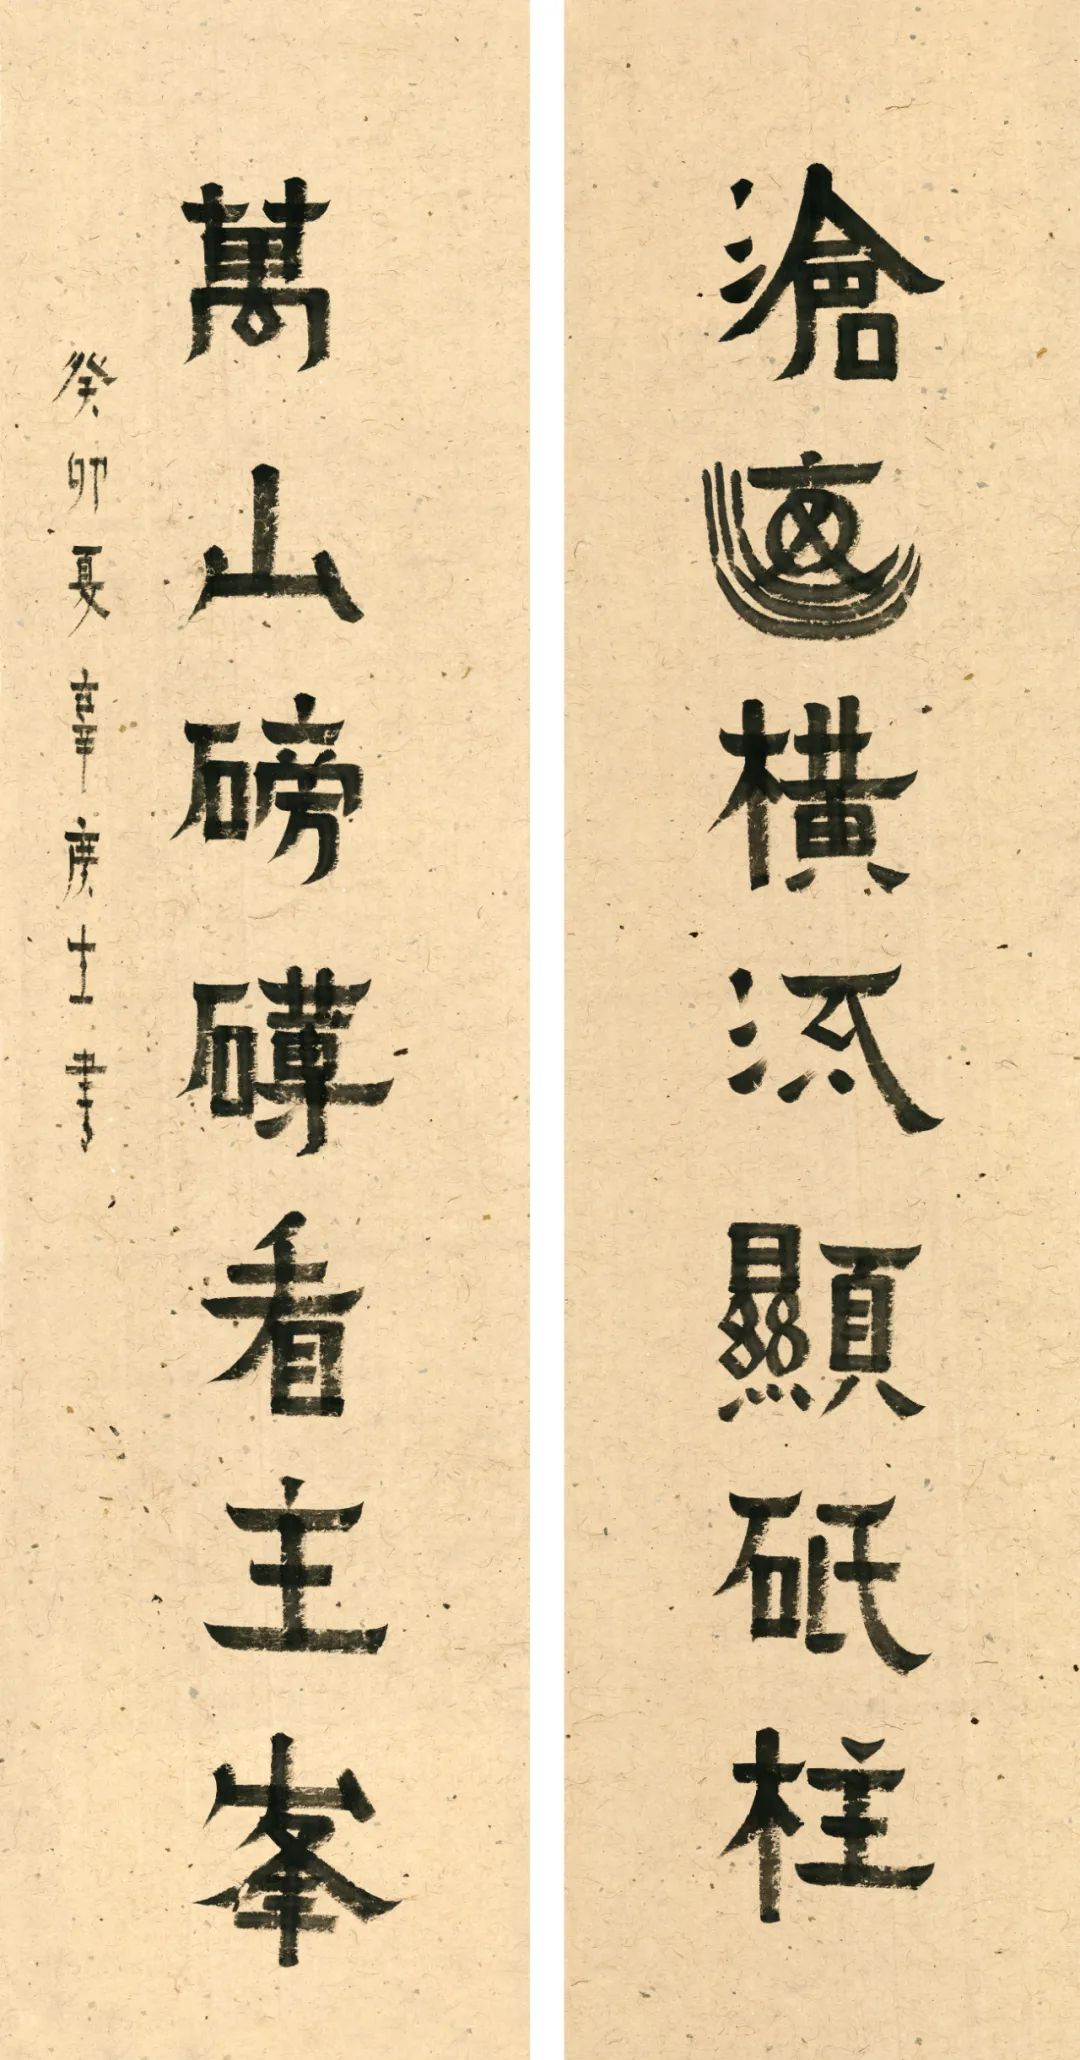 滄海橫流顯砥柱
萬山磅礴看主峯
癸卯夏士書